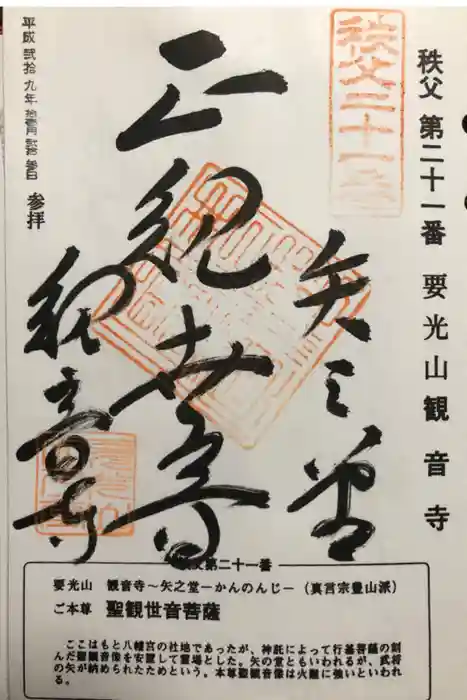 秩父 第二十一番 要光山観音寺
秩父二十一番
矢之堂
正観世音
観音寺
平成弐拾九年
参拝
秩父第二十一番
要光山 観音寺〜矢之堂ーかんのんじー（真言宗豊山派）
ご本尊 聖観世音菩薩
ここはもと八幡宮の社地であったが、神託によって行基菩薩の刻
んだ聖観音像を安置して霊場とした。矢の堂ともいわれるが、武将
の矢が納められたためという。本尊聖観音像は火難に強いといわれ
る。